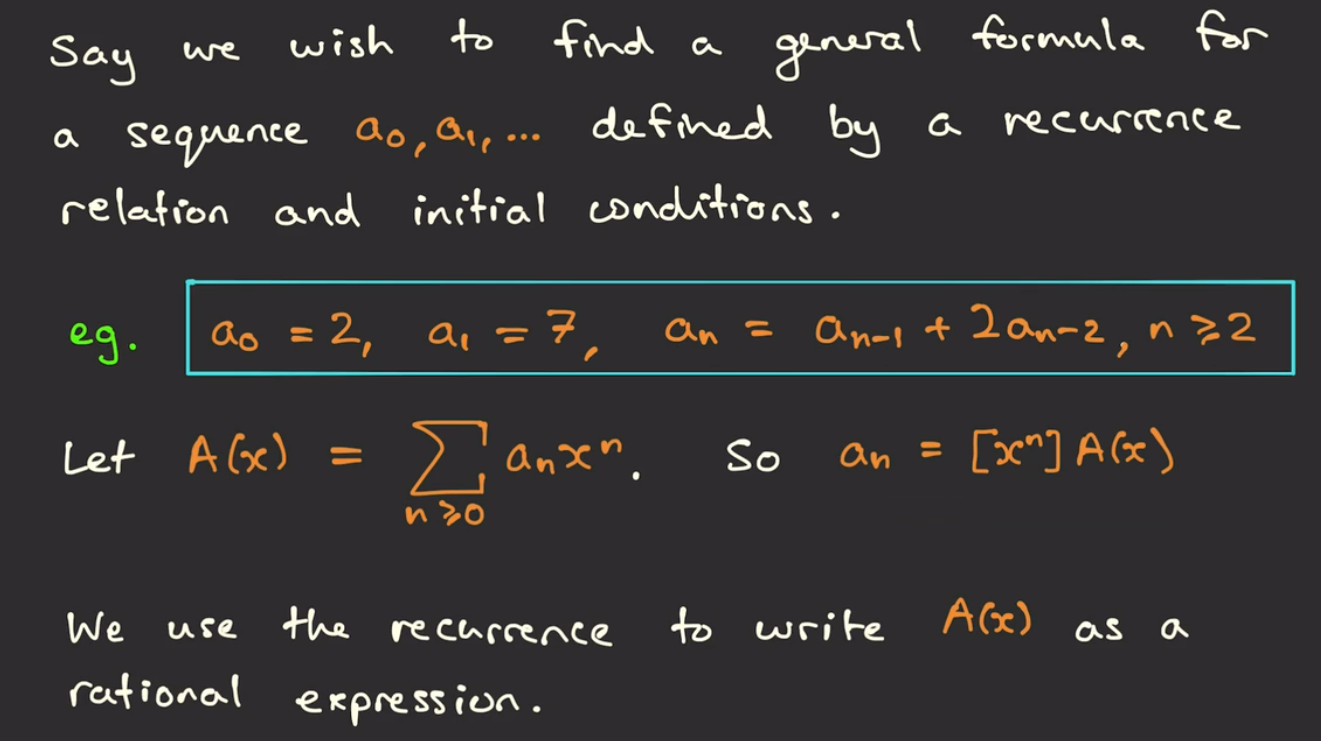 Say we wish to find a general formula for
a sequence a₀, a₁, ... defined by a recurrence
relation and initial conditions.
eg. a₀ = 2, a₁ = 7, aₙ = aₙ₋₁ + 2aₙ₋₂, n ≥ 2
Let A(x) = ∑ aₙxⁿ. So aₙ = [xⁿ] A(x)
n ≥ 0
We use the recurrence to write A(x) as a
rational expression.